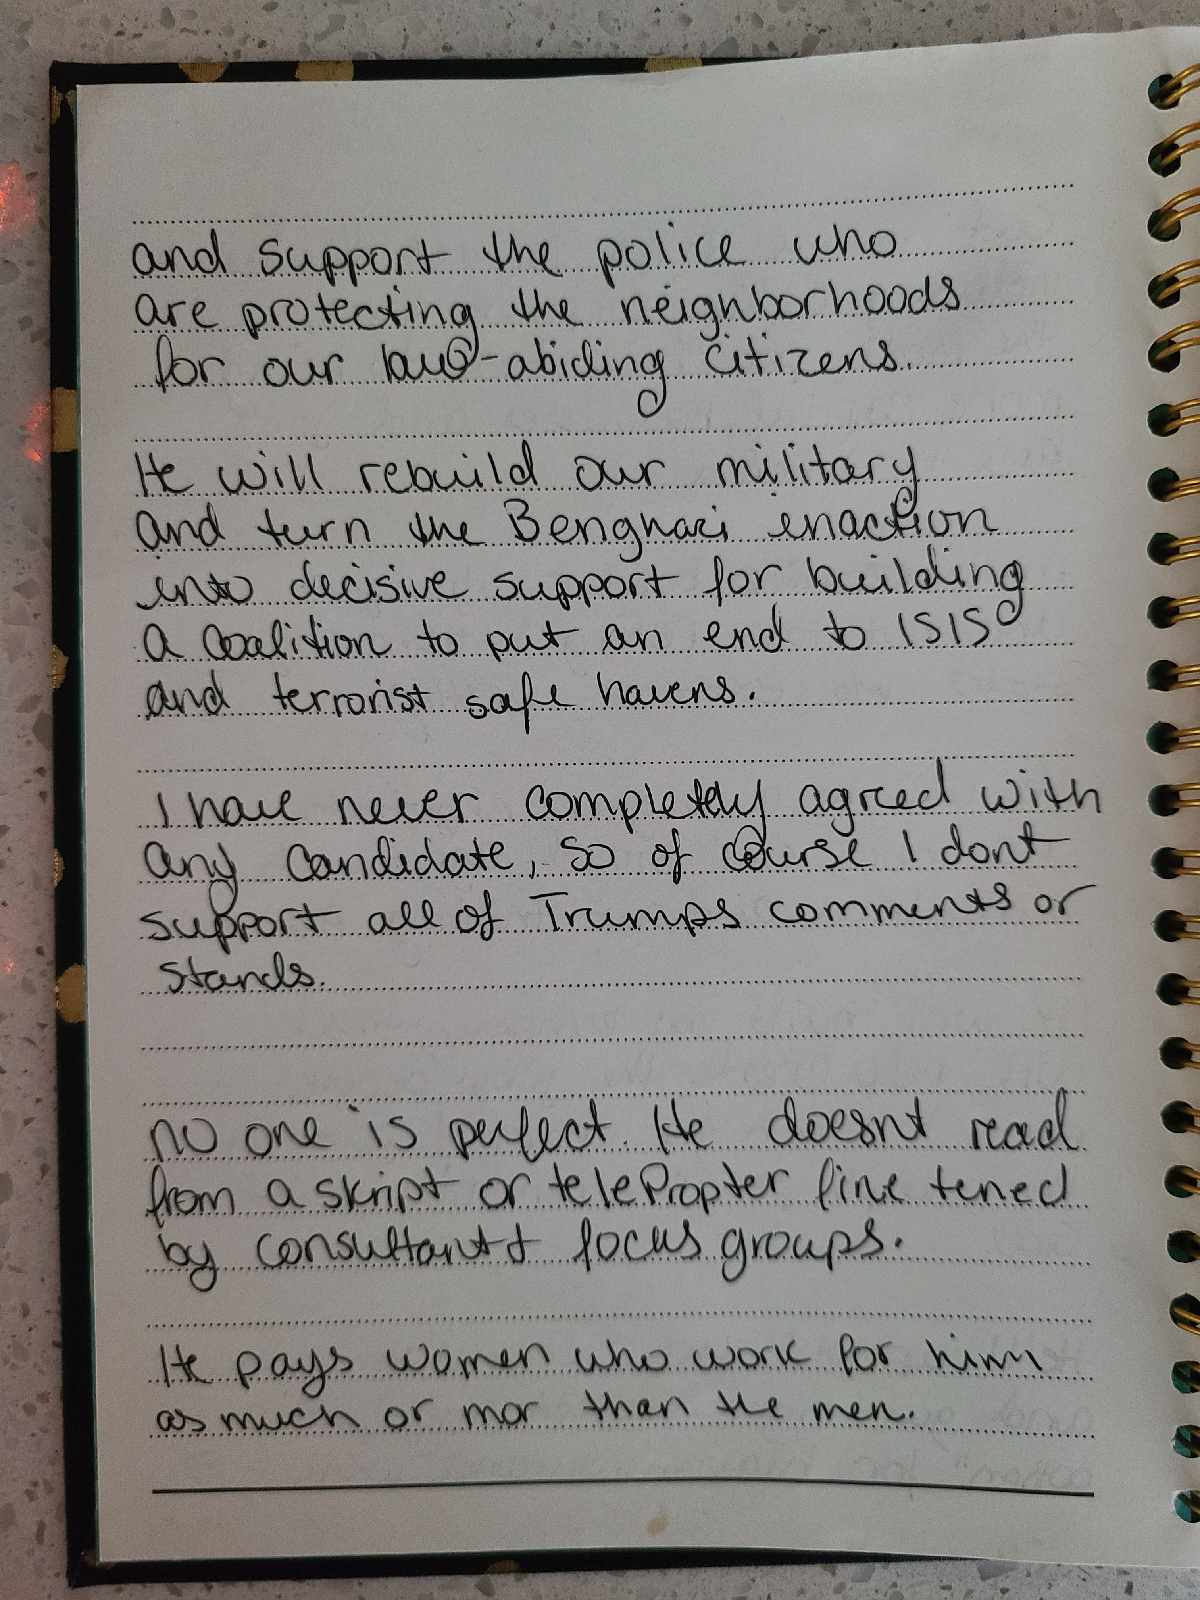 and support the police who
are protecting the neighborhoods
for our law-abiding citizens.
He will rebuild our military
and turn the Benghazi enaction
into decisive support for building
a coalition to put an end to ISIS
and terrorist safe havens.
I have never completely agreed with
any candidate, so of course I dont
support all of Trumps comments or
stands.
no one is perfect. He doesnt read
from a skript or telePropter fine tened
by consultant focus groups.
He pays women who work for him
as much or mor than the men.